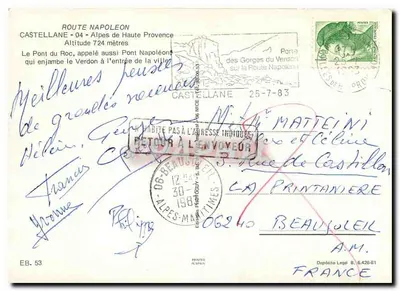 ROUTE NAPOLEON
CASTELLANE - 04 - Alpes de Haute Provence
Altitude 724 mètres
Le Pont du Roc, appelé aussi Pont Napoléon
qui enjambe le Verdon à l'entrée de la ville
Porte
des Gorges du Verdon
sur la Route Napoléon
CASTELLANE 25-7-83
Meilleures pensées
de grandes vacances
Hélène,
Francis
Yvonne
Philippe
MATTEINI
et Céline
N'HABITE PAS À L'ADRESSE INDIQUÉE
RETOUR À L'ENVOYEUR
rue de Castillon
LA PRINTANIERE
06240 BEAUSOLEIL
A.M.
FRANCE
06-BEAUSOLEIL
1983
ALPES-MARITIMES
EB. 53